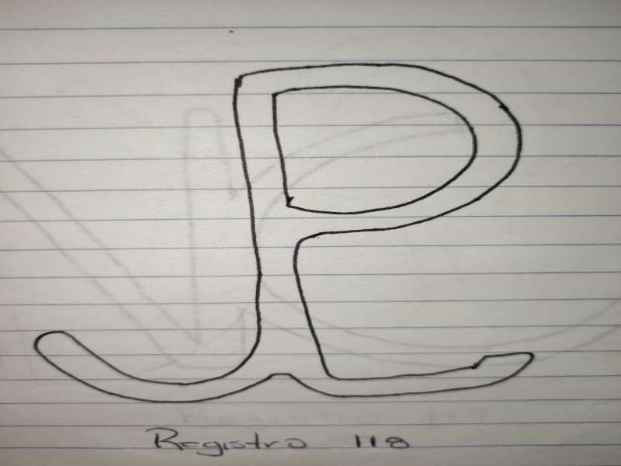 P
Registro 118